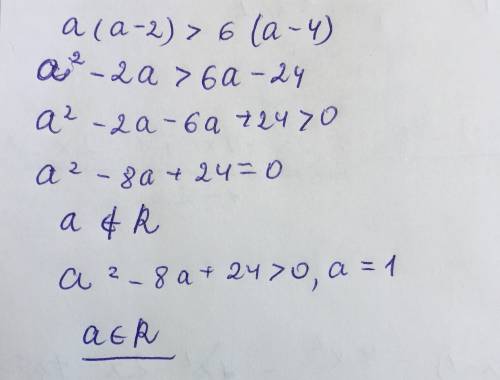 a(a-2) > 6(a-4)
a² - 2a > 6a - 24
a² - 2a - 6a + 24 > 0
a² - 8a + 24 = 0
a ∉ R
a² - 8a + 24 > 0, a = 1
a ∈ R